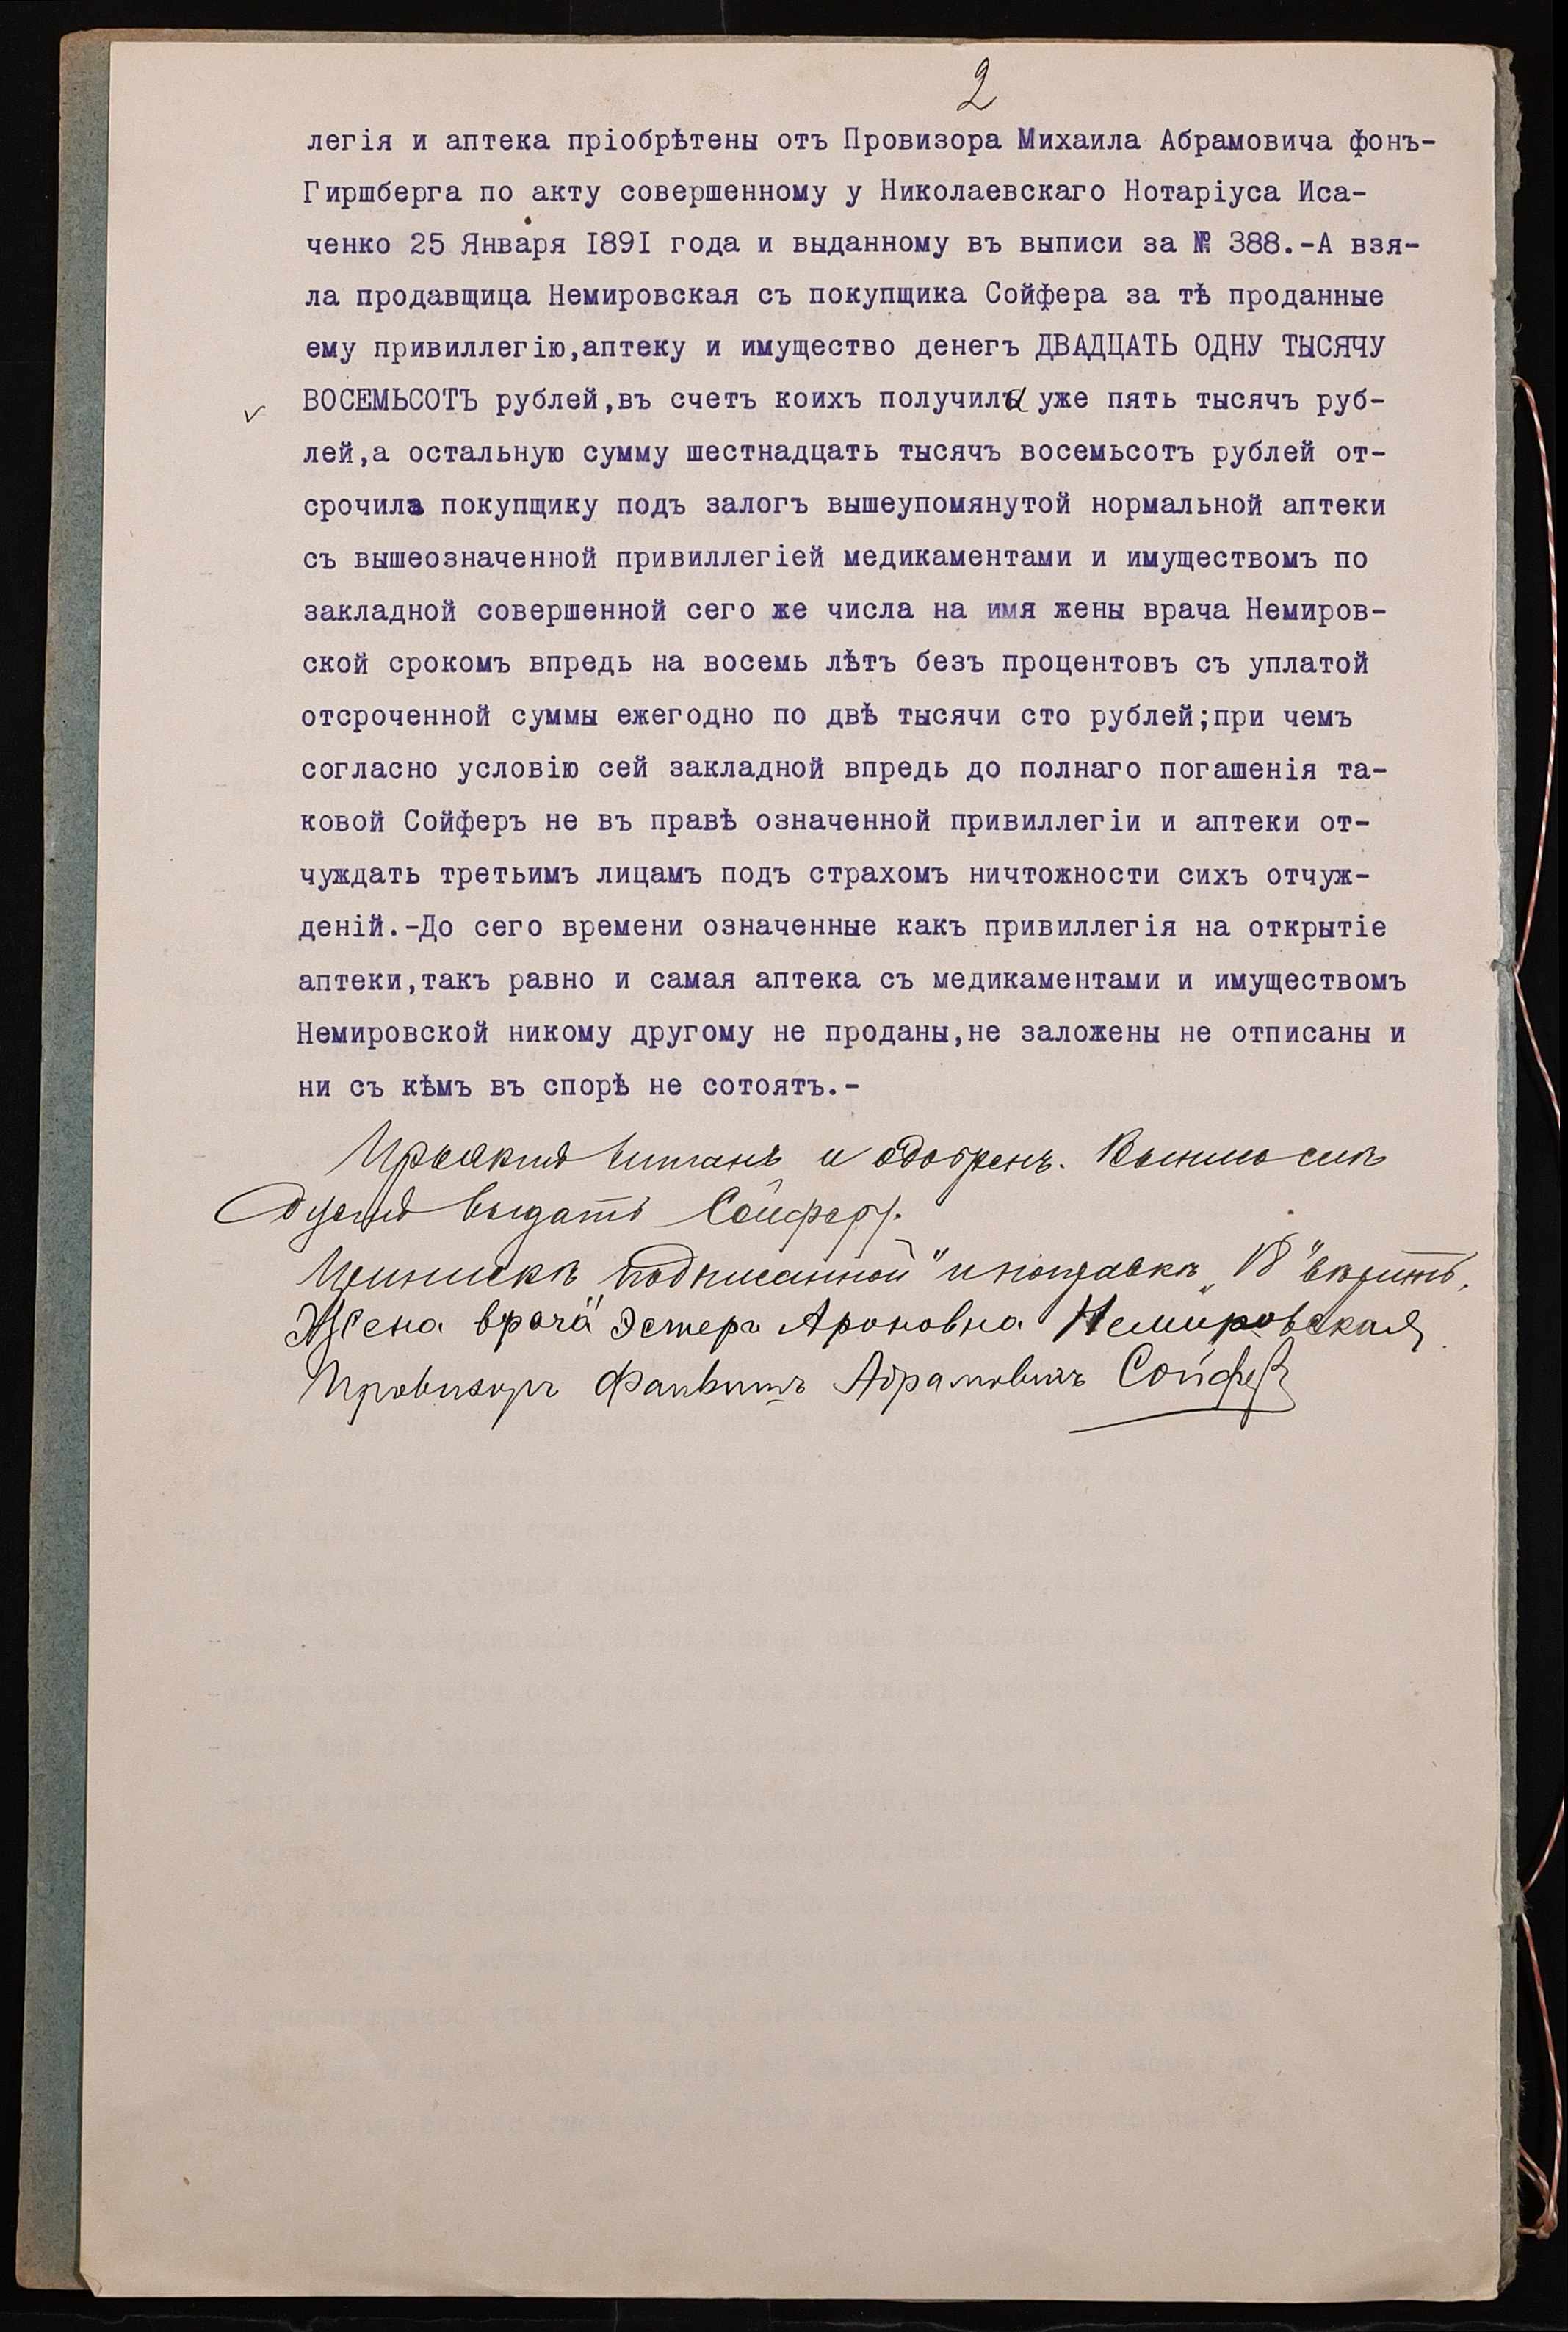 2
легія и аптека пріобрѣтены отъ Провизора Михаила Абрамовича фонъ-
Гиршберга по акту совершенному у Николаевскаго Нотаріуса Иса-
ченко 25 Января I89I года и выданному въ выписи за № 388.-А взя-
ла продавщица Немировская съ покупщика Сойфера за тѣ проданные
ему привиллегію,аптеку и имущество денегъ ДВАДЦАТЬ ОДНУ ТЫСЯЧУ
ВОСЕМЬСОТЪ рублей,въ счетъ коихъ получила уже пять тысячъ руб-
лей,а остальную сумму шестнадцать тысячъ восемьсотъ рублей от-
срочила покупщику подъ залогъ вышеупомянутой нормальной аптеки
съ вышеозначенной привиллегіей медикаментами и имуществомъ по
закладной совершенной сего же числа на имя жены врача Немиров-
ской срокомъ впредь на восемь лѣтъ безъ процентовъ съ уплатой
отсроченной суммы ежегодно по двѣ тысячи сто рублей;при чемъ
согласно условію сей закладной впредь до полнаго погашенія та-
ковой Сойферъ не въ правѣ означенной привиллегіи и аптеки от-
чуждать третьимъ лицамъ подъ страхомъ ничтожности сихъ отчуж-
деній.-До сего времени означенные какъ привиллегія на открытіе
аптеки,такъ равно и самая аптека съ медикаментами и имуществомъ
Немировской никому другому не проданы,не заложены не отписаны и
ни съ кѣмъ въ спорѣ не сотоятъ.-
Проектъ читанъ и одобренъ. Выпись
выдать Сойферу.
Жена врача Эстеръ Ароновна Немировская
Провизоръ Абрамовичъ Сойфер